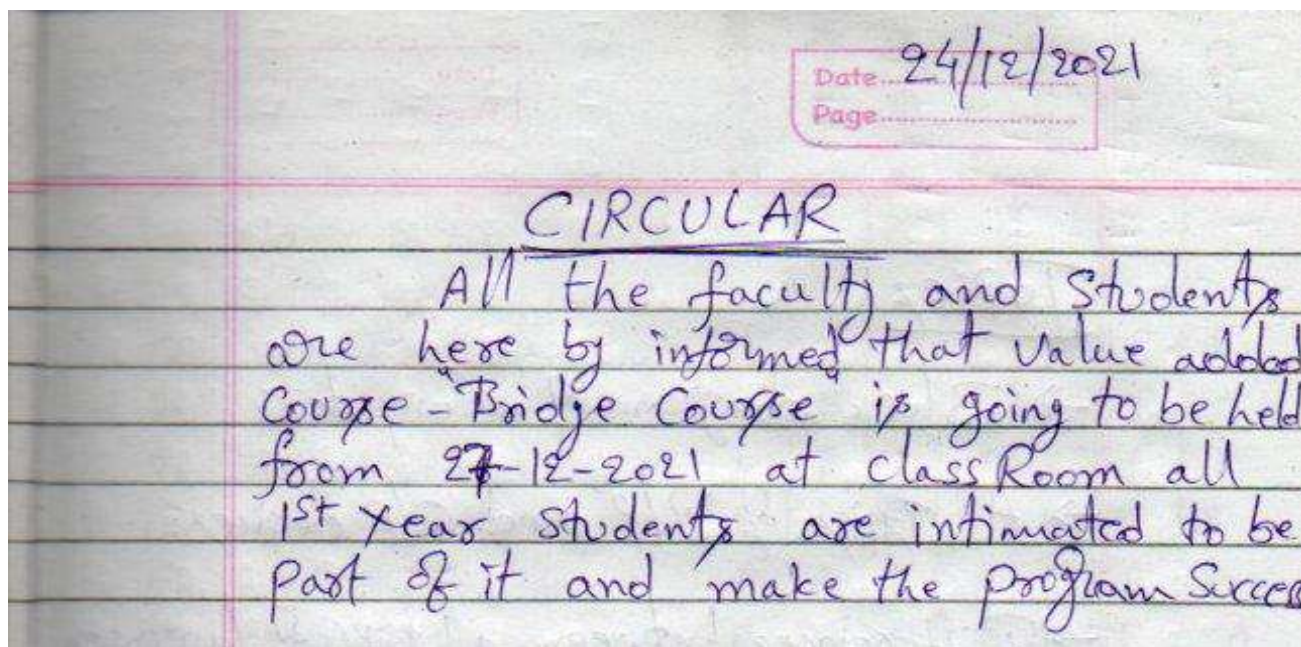 Date 24/12/2021
Page
CIRCULAR
All the faculty and Students
are here by informed that value added
Course - "Bridge Course" is going to be held
from 27-12-2021 at classRoom all
1st Year students are intimated to be
part of it and make the program Success